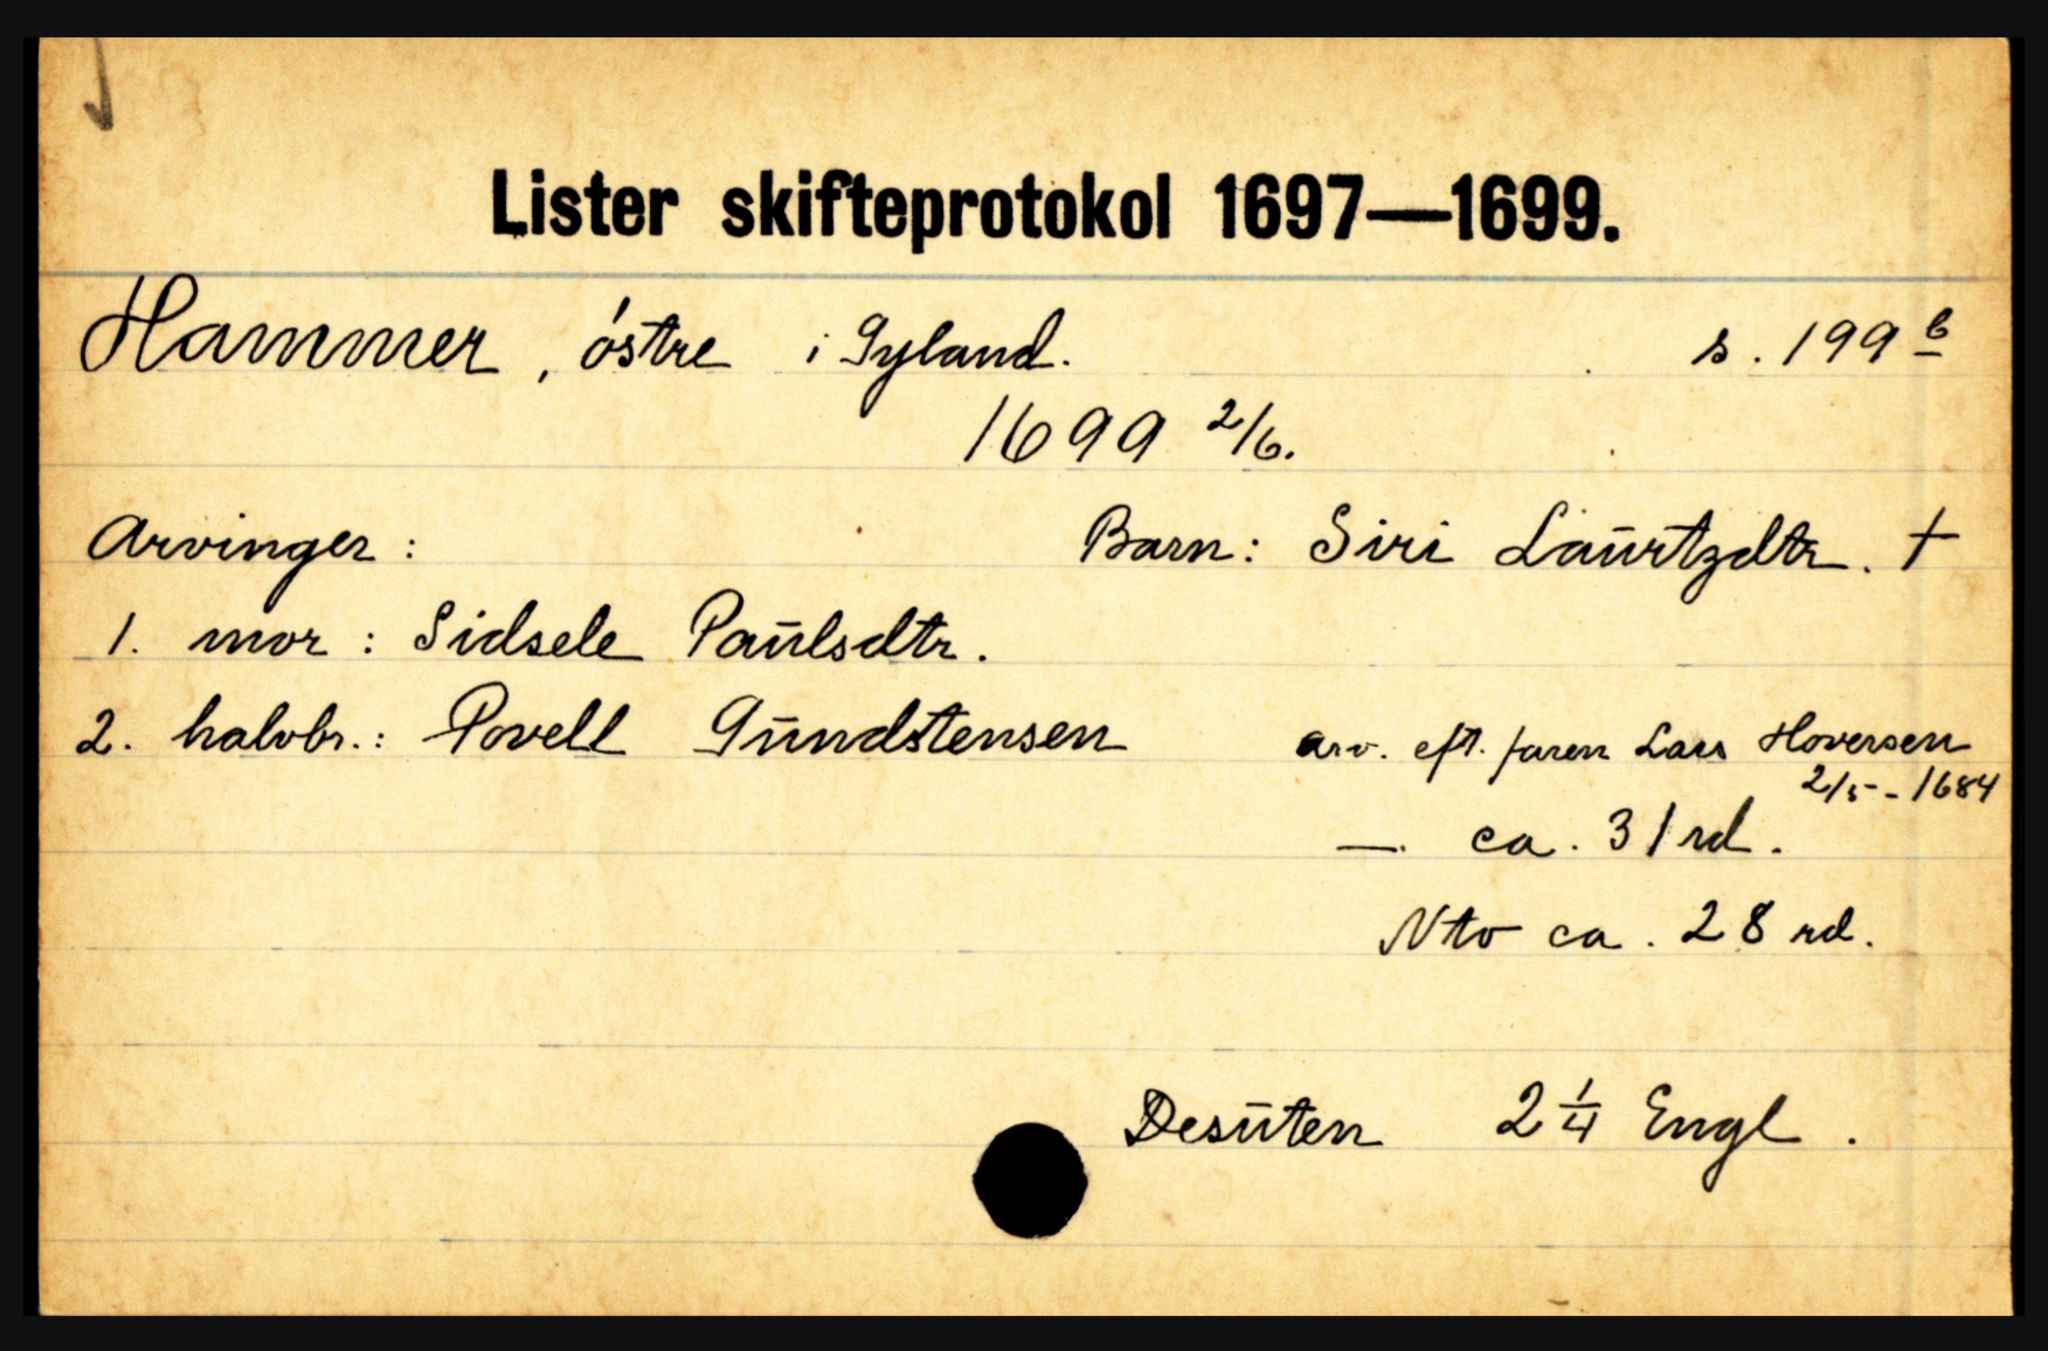 Lister skifteprotokol 1697—1699.
Hammer, óstre i Gyland. s. 199 b
1699 2/6.
Arvinger: Barn: Siri Laūrtzdtr. †
1. mor: Sidsele Paūlsdtr.
2. halvbr.: Povell Gūndstensen arv. eft. faren Lars Hoversen
2/5-1684
—. ca. 31 rd.
Nto ca. 28 rd.
Desūten 2 1/4 Engl.